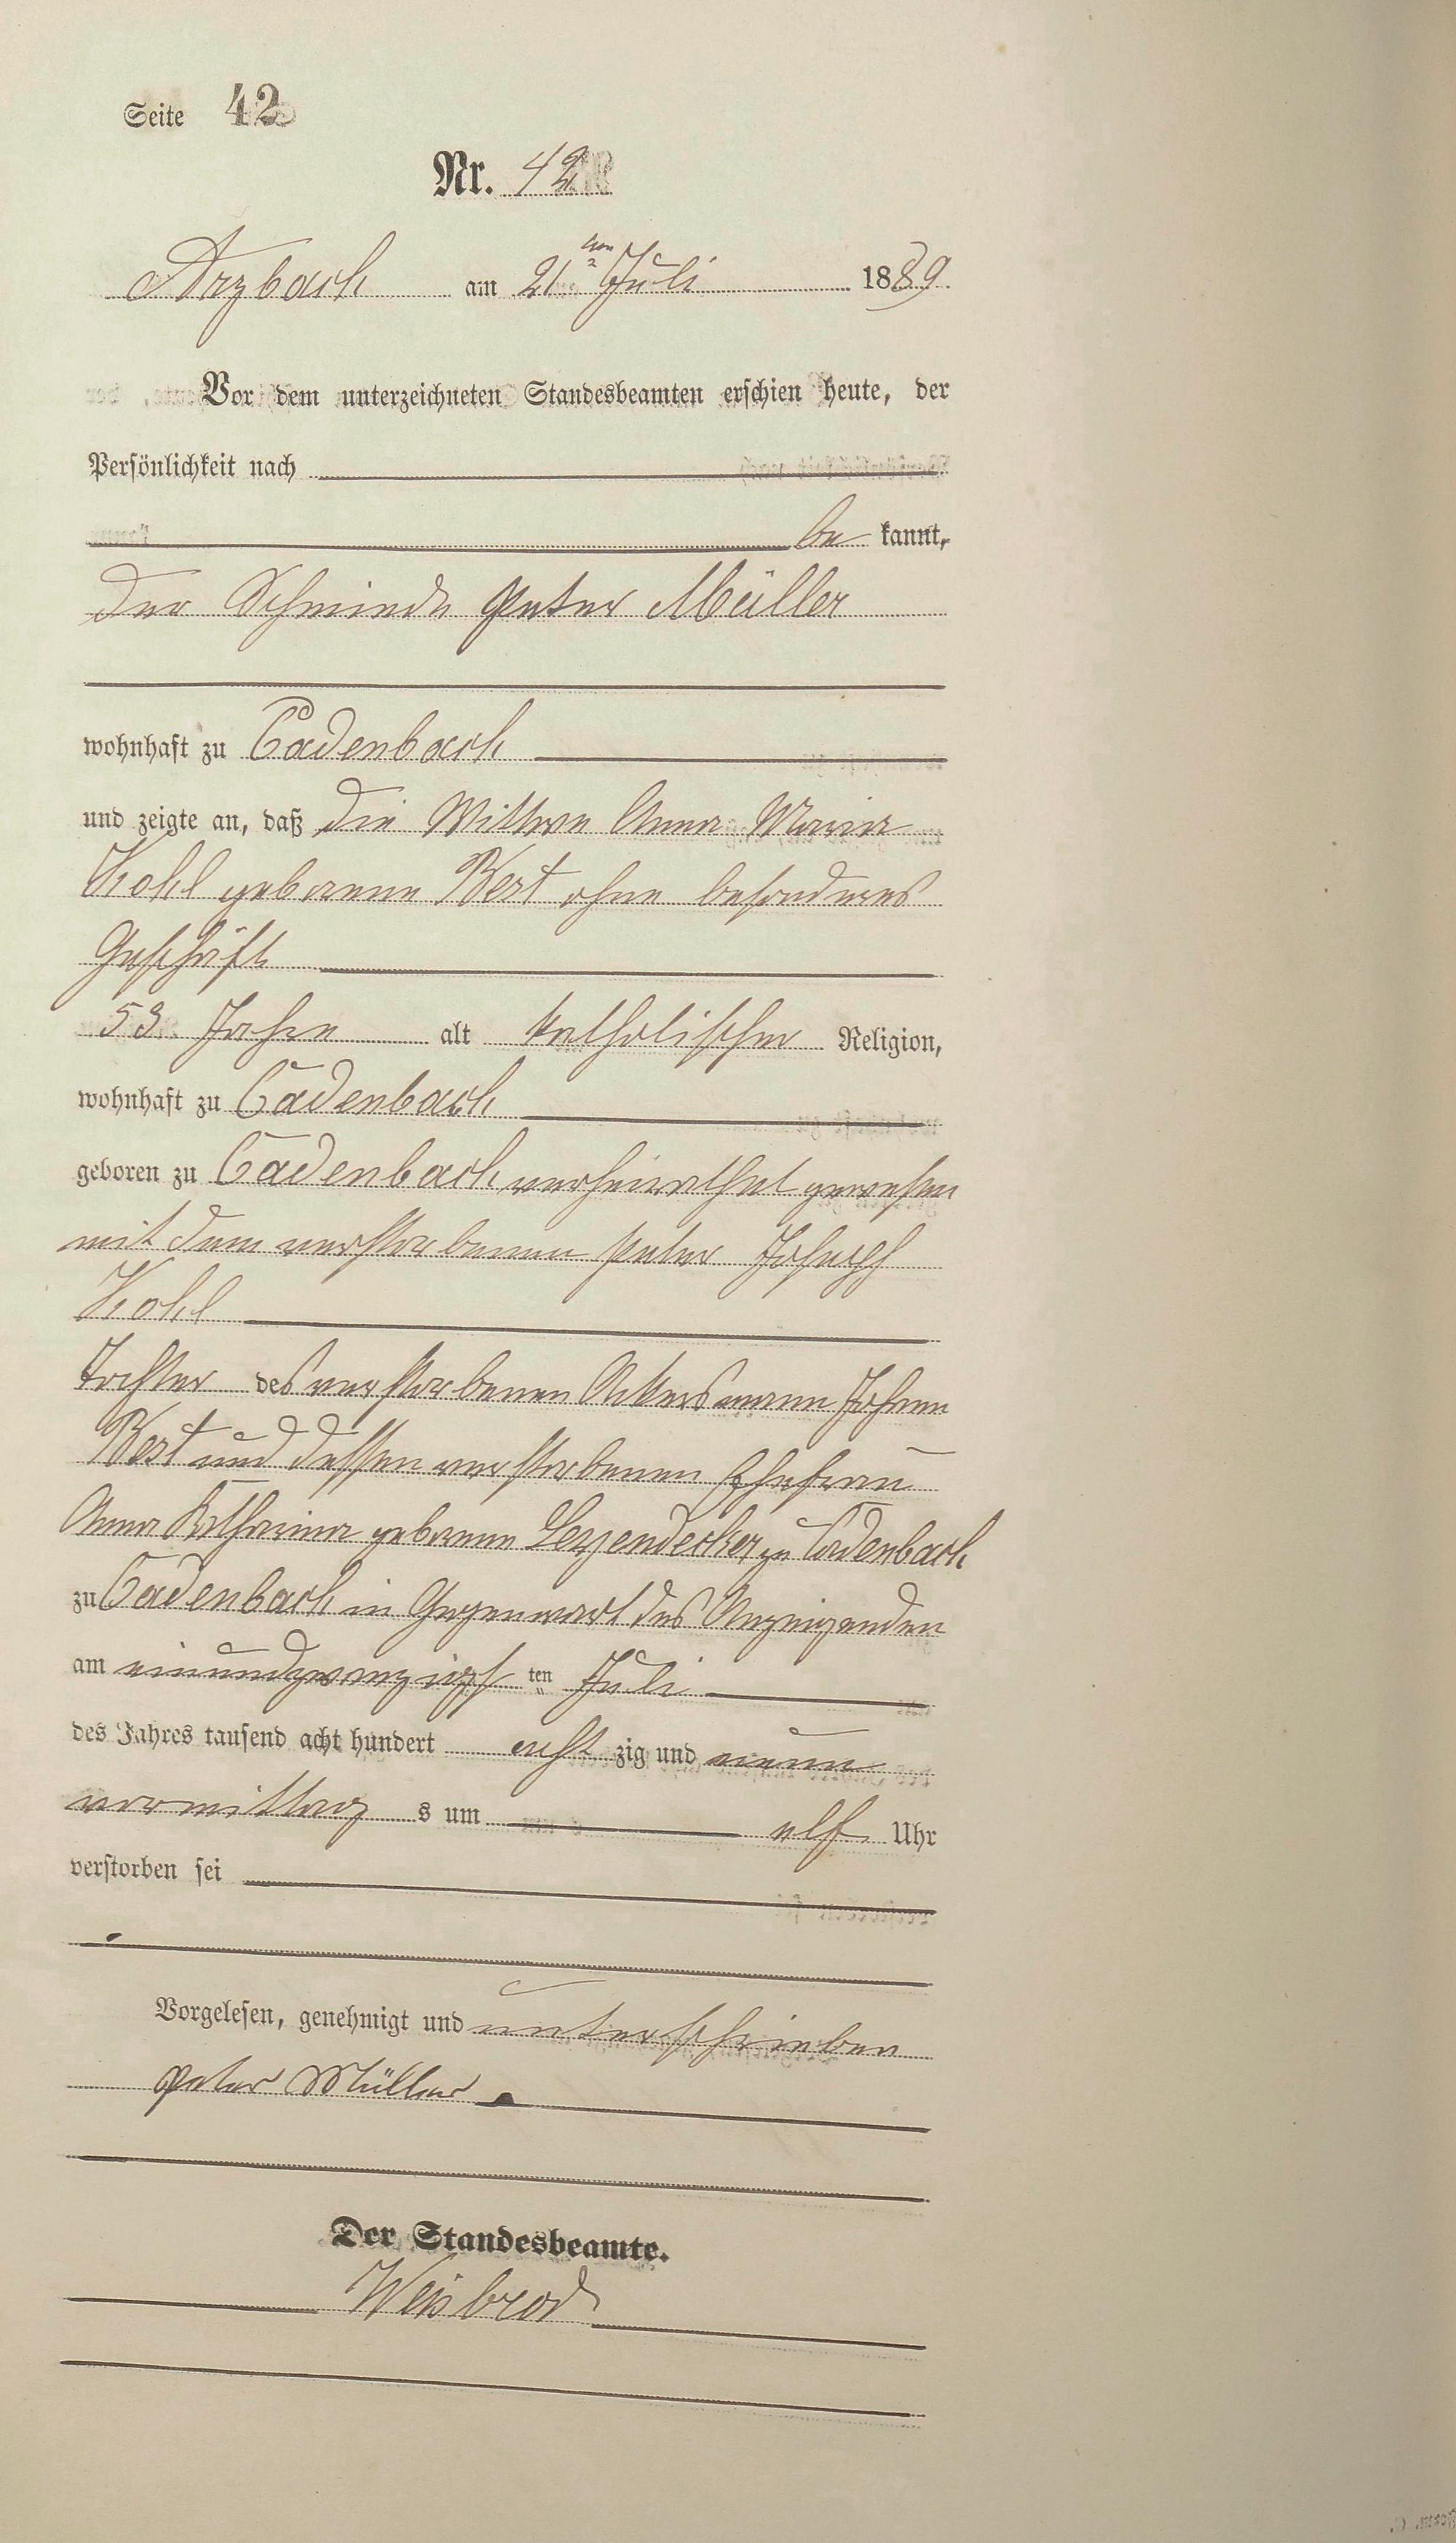 Seite 42
Nr. 42
Arzbach am 21ten Juli 1889.
Vor dem unterzeichneten Standesbeamten erschien heute, der
Persönlichkeit nach
be kannt,
der Schmiede Peter Müller
wohnhaft zu Cadenbach
und zeigte an, daß die Wittwe Anna Maria
Kohl geborene Best ohne besonderes
Geschäft
53 Jahre alt katholischer Religion,
wohnhaft zu Cadenbach
geboren zu Cadenbach verheirathet gewesen
mit dem verstorbenen Peter Joseph
Kohl
Tochter des verstorbenen Ackersmann Johann
Best und dessen verstorbenen Ehefrau
Anna Katharina geborene Leyendecker zu Cadenbach
zu Cadenbach in Gegenwart des Anzeigenden
am einundzwanzigsten Juli
des Jahres tausend acht hundert acht zig und neun
vormittags um elf Uhr
verstorben sei
Vorgelesen, genehmigt und unterschrieben
Peter Müller
Der Standesbeamte.
Weisbrod